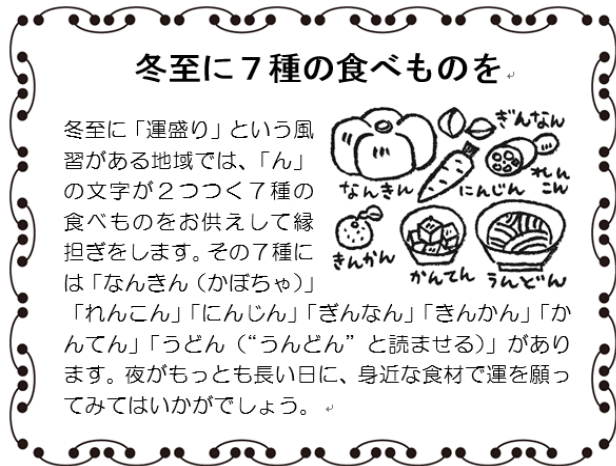 冬至に７種の食べものを
冬至に「運盛り」という風
習がある地域では、「ん」
の文字が２つつく７種の
食べものをお供えして縁
担ぎをします。その７種に
は「なんきん（かぼちゃ）」
「れんこん」「にんじん」「ぎんなん」「きんかん」「か
んてん」「うどん（“うんどん”と読ませる）」があり
ます。夜がもっとも長い日に、身近な食材で運を願っ
てみてはいかがでしょう。
ぎんなん
なんきん
にんじん
れん
こん
きんかん
かんてん
うんどん